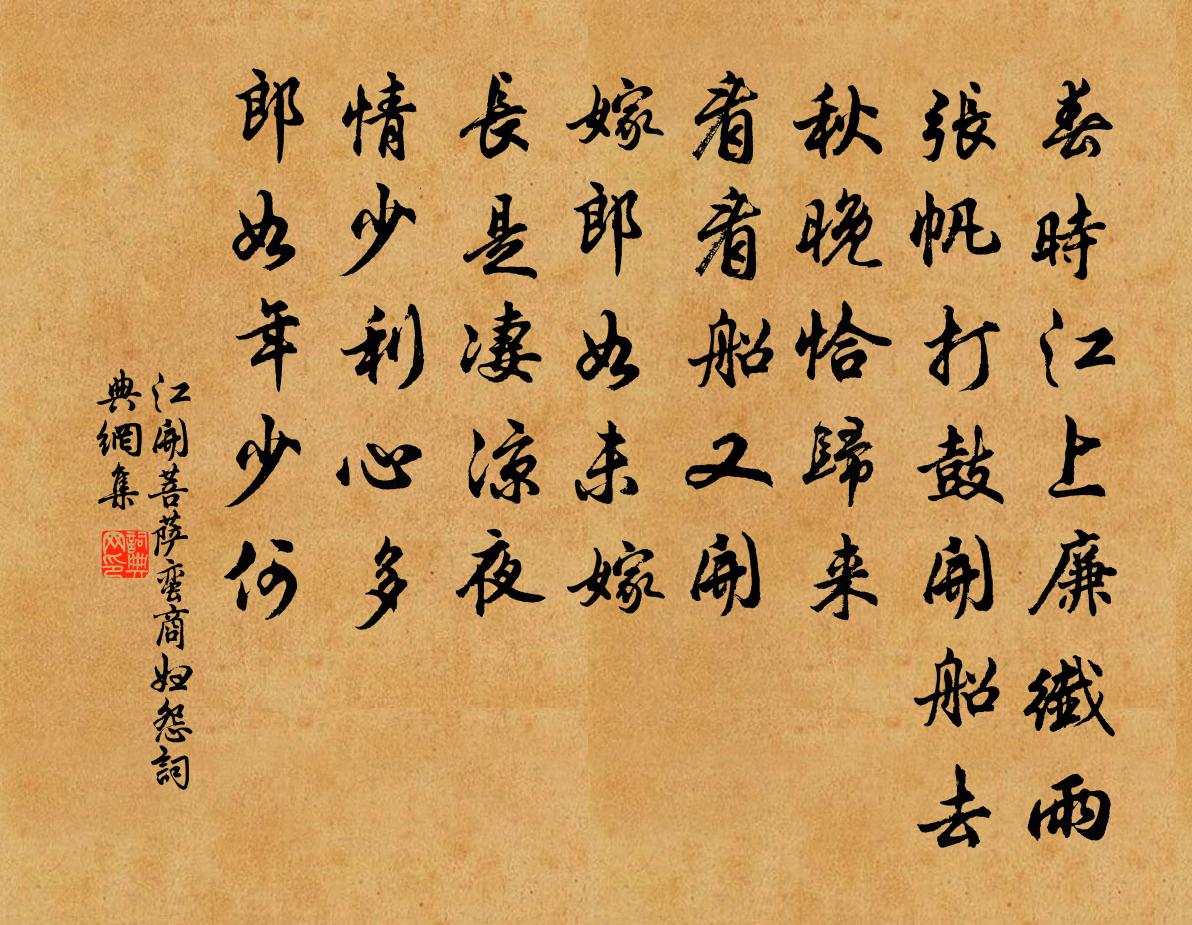 春時江上廉纖雨
張帆打鼓開船去
秋晚恰歸来
看看船又開
嫁郎如未嫁
長是凄凉夜
情少利心多
郎如年少何
江開菩萨蛮商妇怨詞
典網集
詞典网印